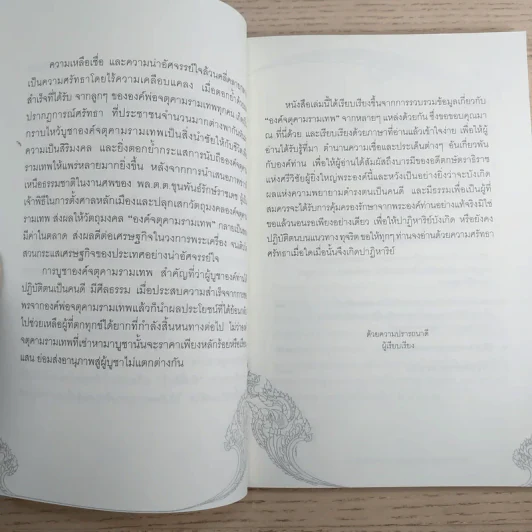 ความเหลือเชื่อ และความน่าอัศจรรย์ใจล้วนคลี่คลาย
เป็นความศรัทธาโดยไร้ความเคลือบแคลง เมื่อตอกย้ำด้วย
สำเร็จที่ได้รับ จากลูกๆ ขององค์พ่อจตุคามรามเทพทุกคน
ปรากฏการณ์ศรัทธา ที่ประชาชนจำนวนมากต่างพากัน
กราบไหว้บูชาองค์จตุคามรามเทพเป็นสิ่งนำชัยให้กับชีวิต
ความเป็นสิริมงคล และยิ่งตอกย้ำกระแสการนับถือองค์จตุคาม
รามเทพให้แพร่หลายมากยิ่งขึ้น หลังจากการนำเสนอภาพ
เหนือธรรมชาติในงานศพของ พล.ต.ต.ขุนพันธ์รักษ์ราชเดช ผู้
เจ้าพิธีในการตั้งศาลหลักเมืองและปลุกเสกวัตถุมงคลองค์
รามเทพ ส่งผลให้วัตถุมงคล “องค์จตุคามรามเทพ” กลายเป็น
มีค่าในตลาด ส่งผลดีต่อเศรษฐกิจในวงการพระเครื่อง จน
สวนกระแสเศรษฐกิจของประเทศอย่างน่าอัศจรรย์ใจ
การบูชาองค์จตุคามรามเทพ สำคัญที่ว่าผู้บูชาองค์ท่าน
ปฏิบัติตนเป็นคนดี มีศีลธรรม เมื่อประสบความสำเร็จจากการ
พรจากองค์พ่อจตุคามรามเทพแล้วก็นำผลประโยชน์ที่ได้
ไปช่วยเหลือผู้ที่ตกทุกข์ได้ยากที่กำลังสิ้นหนทางต่อไป ไม่ว่า
จตุคามรามเทพที่เช่าหามาบูชานั้นจะราคาเพียงหลักร้อยหรือ
แสน ย่อมส่งอานุภาพสู่ผู้บูชาไม่แตกต่างกัน
หนังสือเล่มนี้ได้เรียบเรียงขึ้นจากการรวบรวมข้อมูลเกี่ยวกับ
“องค์จตุคามรามเทพ” จากหลายๆ แหล่งด้วยกัน ซึ่งขอขอบคุณมา
ณ ที่นี้ด้วย และเรียบเรียงด้วยภาษาที่อ่านแล้วเข้าใจง่าย เพื่อให้ผู้
อ่านได้รับรู้ที่มา ตำนานความเชื่อและประเด็นต่างๆ อันเกี่ยวพัน
กับองค์ท่าน เพื่อให้ผู้อ่านได้สัมผัสถึงบารมีของอดีตกษัตราธิราช
แห่งศรีวิชัยผู้ยิ่งใหญ่พระองค์นี้และหวังเป็นอย่างยิ่งว่าจะบังเกิด
ผลแห่งความพยายามดำรงตนเป็นคนดี และมีธรรมเพื่อเป็นผู้ที่
สมควรจะได้รับการคุ้มครองรักษาจากพระองค์ท่านอย่างแท้จริงมิใช่
ขอแล้วนอนรอเพียงอย่างเดียว เพื่อให้ปาฏิหาริย์บังเกิด หรือยังคง
ปฏิบัติตนบนแนวทางทุจริต ขอให้ทุกๆ ท่านจงอ่านด้วยความศรัทธา
ศรัทธาเมื่อใดเมื่อนั้นจึงเกิดปาฏิหาริย์
ด้วยความปรารถนาดี
ผู้เรียบเรียง